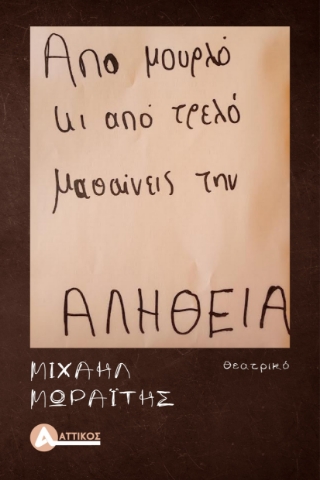 Απο μουρλό
κι από τρελό
μαθαίνεις την
ΑΛΗΘΕΙΑ
ΜΙΧΑΗΛ
ΜΩΡΑΪΤΗΣ
θεατρικό
ΑΤΤΙΚΟΣ